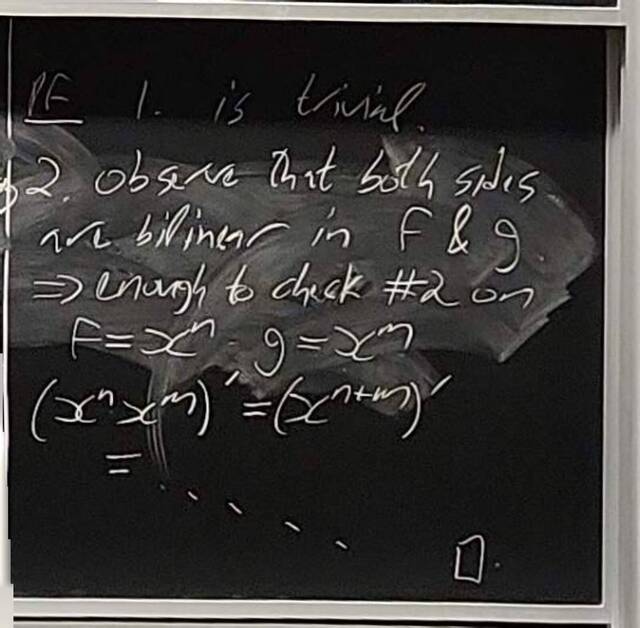 PF 1. is trivial.
2. observe that both sides
are bilinear in f & g.
⇒ enough to check #2 on
f = xⁿ, g = xᵐ
(xⁿ xᵐ)′ = (xⁿ⁺ᵐ)′
= . . . . .
□.